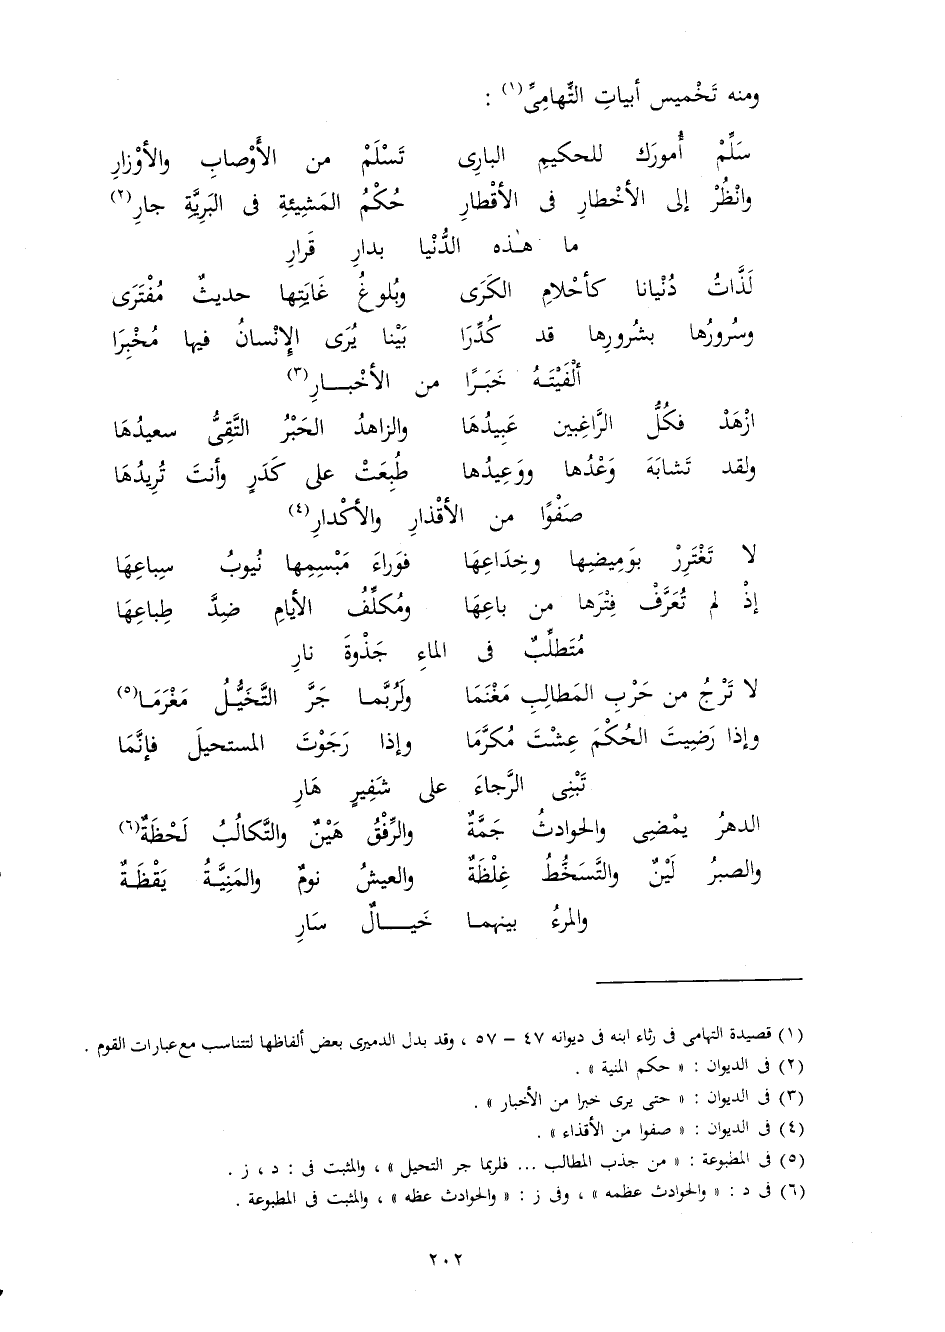 ومنه تَخْميس أبياتِ التِّهامِىِّ(١) :
سَلِّمْ أُمورَك للحكيمِ البارِى تَسْلَمْ من الأَوْصابِ والأوْزارِ
وانْظُرْ إلى الأخْطارِ فى الأقْطارِ حُكْمُ المَشِيئةِ فى البَرِيَّةِ جارِ(٢)
ما هٰذه الدُّنْيا بدارِ قَرارِ
لَذَّاتُ دُنْيانا كأحْلامِ الكَرَى وبُلوغُ غَايَتِها حديثٌ مُفْتَرَى
وسُرورُها بشُرورِها قد كُدِّرَا بَيْنا يُرَى الإِنْسانُ فيها مُخْبِرَا
ألْفَيْتَهُ خَبَرًا من الأخْبـارِ(٣)
ازْهَدْ فكُلُّ الرَّاغِبين عَبِيدُهَا والزاهدُ الحَبْرُ التَّقِىُّ سعيدُهَا
ولقد تَشابَهَ وَعْدُها ووَعِيدُها طُبِعَتْ على كَدَرٍ وأنتَ تُرِيدُهَا
صَفْوًا من الأقْذارِ والأكْدارِ(٤)
لا تَغْتَرِرْ بوَمِيضِها وخِدَاعِهَا فوَراءَ مَبْسِمِها نُيوبُ سِباعِهَا
إذْ لم تُعَرَّفْ فِتْرَها من باعِهَا ومُكلِّفُ الأيامِ ضِدَّ طِباعِهَا
مُتَطلِّبٌ فى الماءِ جَذْوةَ نارِ
لا تَرْجُ من حَرْبِ المَطالِبِ مَغْنَمَا ولَرُبَّمـا جَرَّ التَّخَيُّلُ مَغْرَمَـا(٥)
وإذا رَضِيتَ الحُكْمَ عِشْتَ مُكرَّمَا وإذا رَجَوْتَ المستحيلَ فإنَّمَا
تَبْنِى الرَّجاءَ على شَفِيرٍ هَارِ
الدهرُ يمْضِى والحوادثُ جَمَّةٌ والرِّفْقُ هَيْنٌ والتَّكالُبُ لَحْظَةٌ(٦)
والصبرُ لَيْنٌ والتَّسَخُّطُ غِلْظَةٌ والعيشُ نومٌ والمَنِيَّـةُ يَقْظَـةٌ
والمرءُ بينهمـا خَيـالٌ سَارِ
(١) قصيدة التهامى فى رثاء ابنه فى ديوانه ٤٧ – ٥٧ ، وقد بدل الدميرى بعض ألفاظها لتتناسب مع عبارات القوم .
(٢) فى الديوان : « حكم المنية » .
(٣) فى الديوان : « حتى يرى خبرا من الأخبار » .
(٤) فى الديوان : « صفوا من الأقذاء » .
(٥) فى المطبوعة : « من جذب المطالب ... فلربما جر التحيل » ، والمثبت فى : د ، ز .
(٦) فى د : « والحوادث عظمه » ، وفى ز : « والحوادث عظه » ، والمثبت فى المطبوعة .
٢٠٢